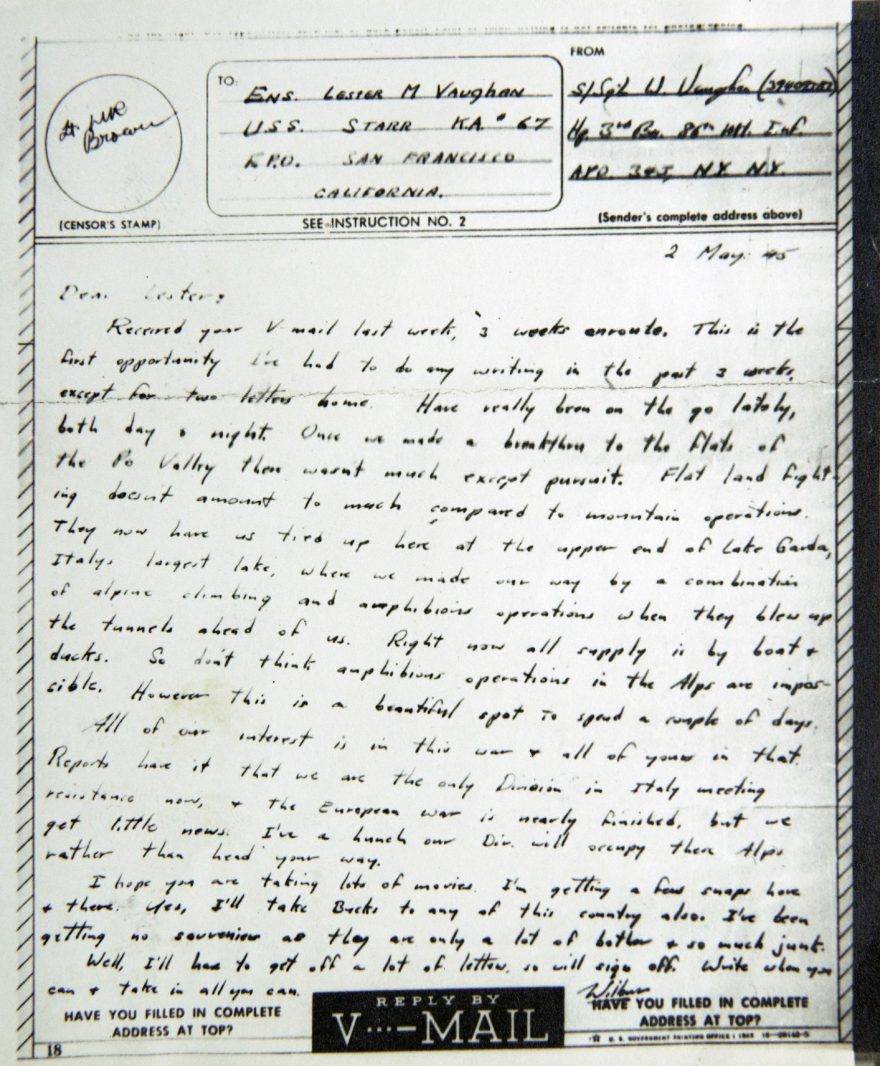 Lt. JWR
Brown
(CENSOR'S STAMP)
TO:
ENS. LESTER M VAUGHAN
U.S.S. STARR KA # 67
F.P.O. SAN FRANCISCO
CALIFORNIA.
SEE INSTRUCTION NO. 2
FROM
S/Sgt W. Vaughan
Hq. 3rd Bn. 86th Mt. Inf.
APO 345, N.Y. N.Y.
(Sender's complete address above)
2 May 45
Dear Lester:
Received your V-mail last week, 3 weeks enroute. This is the
first opportunity I've had to do any writing in the past 3 weeks,
except for two letters home. Have really been on the go lately,
both day & night. Once we made a breakthru to the flats of
the Po Valley there wasn't much except pursuit. Flat land fight-
ing doesn't amount to much compared to mountain operations.
They now have us tied up here at the upper end of Lake Garda,
Italys largest lake, where we made our way by a combination
of alpine climbing and amphibious operations when they blew up
the tunnels ahead of us. Right now all supply is by boat &
ducks. So don't think amphibious operations in the Alps are impos-
sible. However this is a beautiful spot to spend a couple of days.
All of our interest is in this war & all of yours in that.
Reports have it that we are the only Division in Italy meeting
resistance now, & the European war is nearly finished, but we
get little news. I've a hunch our Div. will occupy these Alps
rather than head your way.
I hope you are taking lots of movies. I'm getting a few snaps here
& there. Yes, I'll take Bucks to any of this country also. I've been
getting no souvenirs as they are only a lot of bother & so much junk.
Well, I'll have to get off a lot of letters, so will sign off. Write when you
can & take in all you can.
Wilbur
HAVE YOU FILLED IN COMPLETE
ADDRESS AT TOP?
REPLY BY
V···—MAIL
HAVE YOU FILLED IN COMPLETE
ADDRESS AT TOP?
18
☆ U. S. GOVERNMENT PRINTING OFFICE : 1943